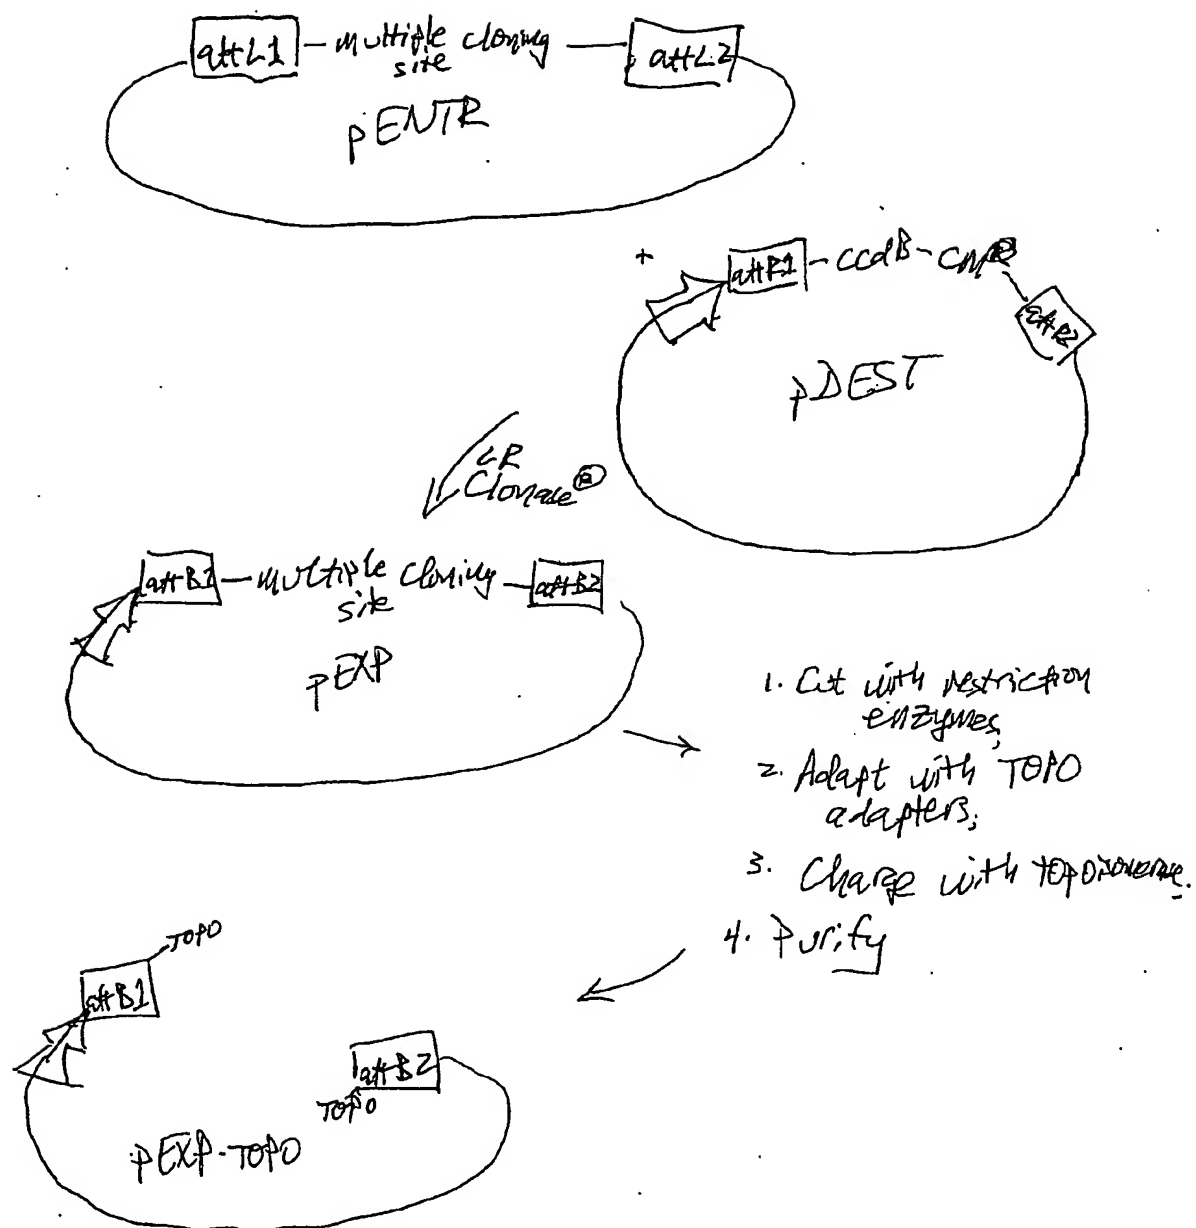 attL1 - multiple cloning site - attL2
pENTR
+
attR1 - ccdB - CMR
attR2
pDEST
LR
Clonase®
attB1 - multiple cloning site - attB2
pEXP
1. Cut with restriction
enzymes;
2. Adapt with TOPO
adapters;
3. Charge with topoisomerase.
4. Purify
TOPO
attB1
attB2
TOPO
pEXP-TOPO